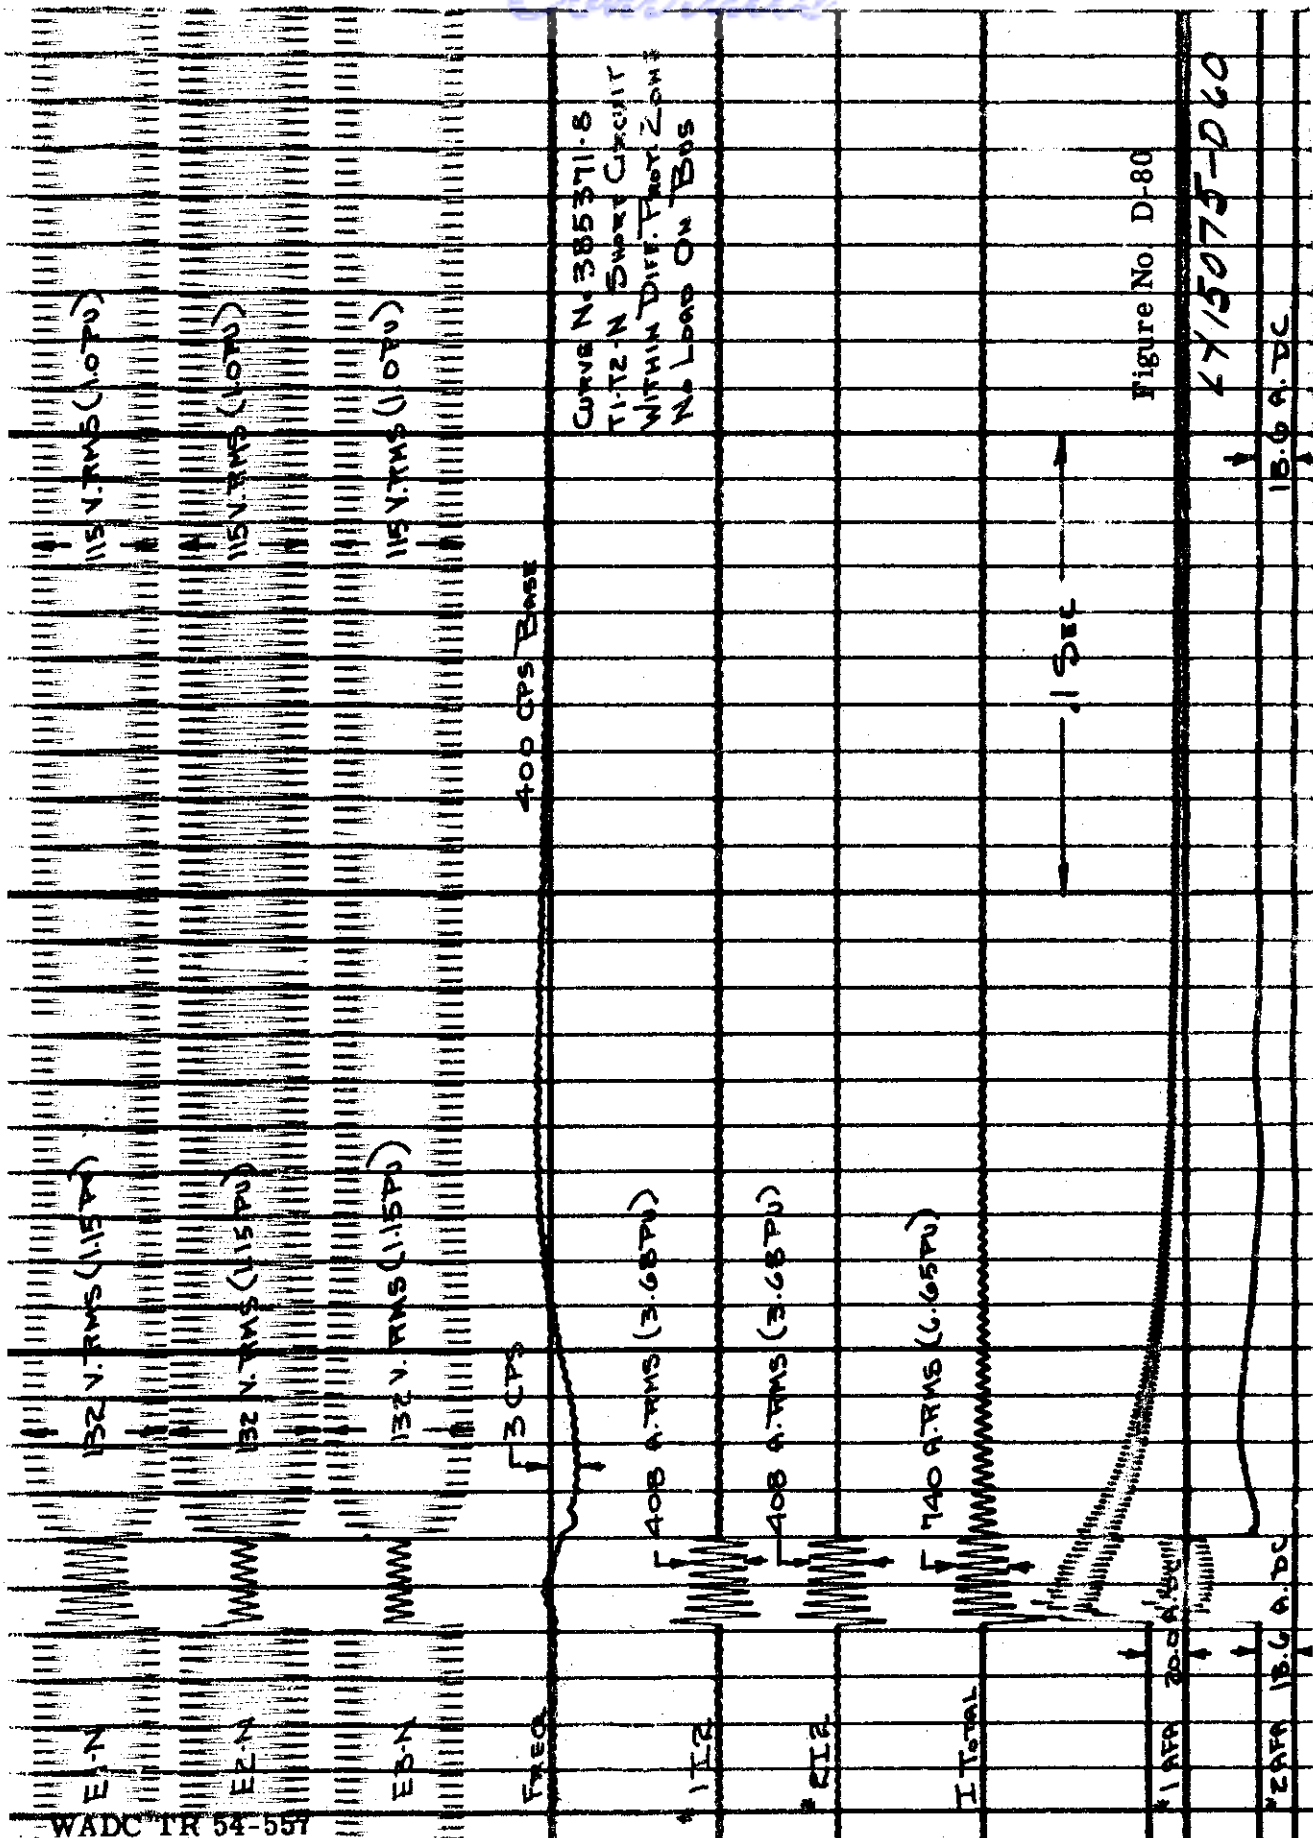 E1-N
132 V. RMS (1.15 PU)
115 V. RMS (1.0 PU)
E2-N
132 V. RMS (1.15 PU)
115 V. RMS (1.0 PU)
E3-N
132 V. RMS (1.15 PU)
115 V. RMS (1.0 PU)
FREQ.
3 CPS
400 CPS BASE
CURVE No 385371-8
T1-T2-N SHORT CIRCUIT
WITHIN DIFF. PROT. ZONE
No LOAD ON BUS
#1 I2
408 A. RMS (3.68 PU)
#2 I2
408 A. RMS (3.68 PU)
I TOTAL
740 A. RMS (6.65 PU)
.1 SEC
Figure No. D-80
#1 AFA 20.0 A. DC
LY15075-D60
#2 AFA 18.6 A. DC
18.6 A. DC
WADC TR 54-557